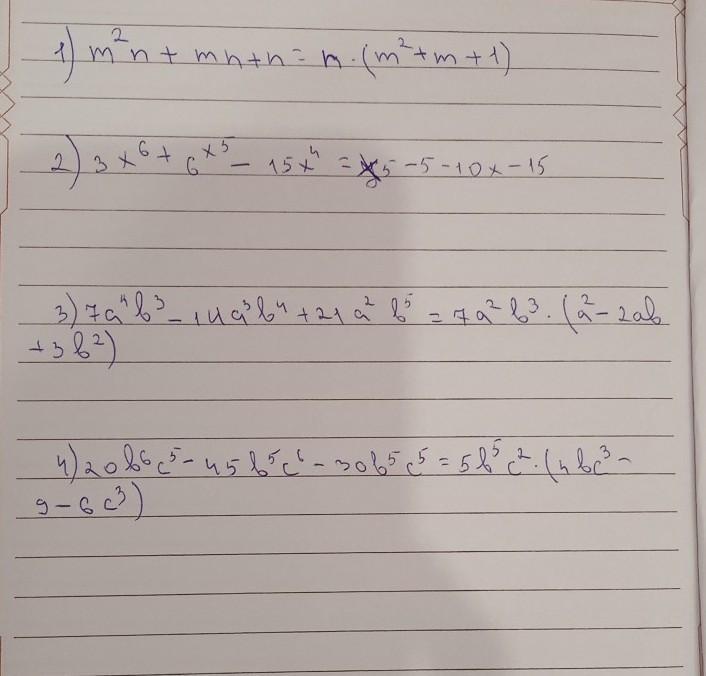 1) m²n + mn + n = n · (m² + m + 1)
2) 3x⁶ + 6ˣ⁵ - 15x⁴ = 5 - 5 - 10x - 15
3) 7a⁴b³ - 14a³b⁴ + 21a² b⁵ = 7a² b³ · (a² - 2ab
+ 3b²)
4) 20b⁶c⁵ - 45b⁵c⁶ - 30b⁵c⁵ = 5b⁵c² · (4bc³ -
9 - 6c³)